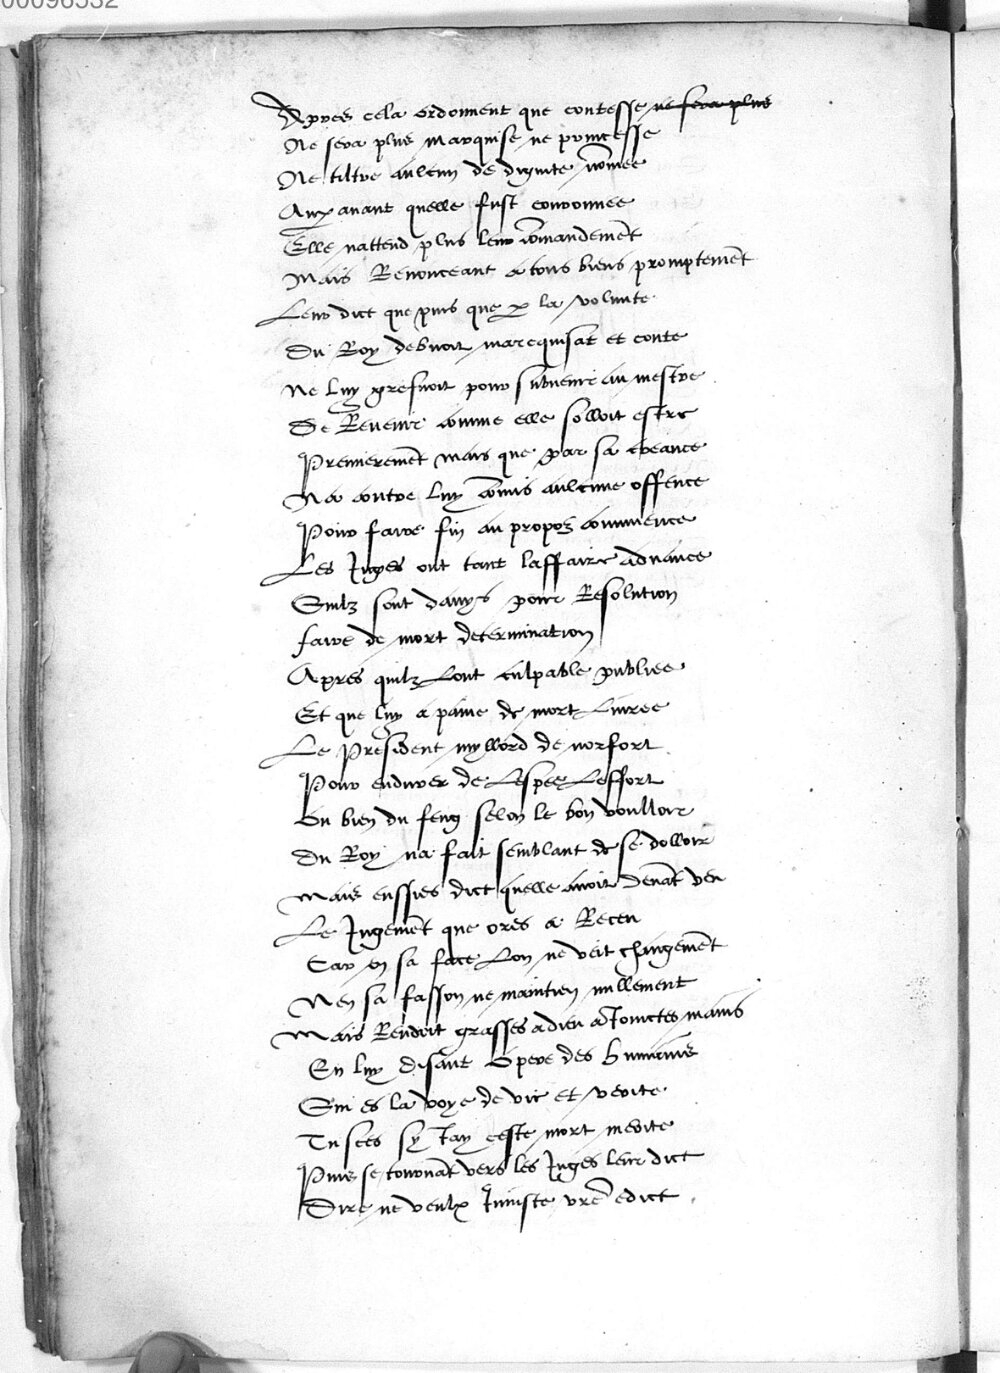 00096532
Apres cela ordonnent que contesse ne sera plus
Ne sera plus marquise ne princesse
Ne tiltre aulcun de dignite nōmee
Auparauant quelle fust couronnee
Elle nattend plus leur cōmandemēt
Mais Renonceant a tous biens promptemēt
Leur dict que puis que p la volunte
Du Roy debuoit marcquisat et conte
Ne luy gresuoit pour subuenir au mestre
De Reuenir comme elle solloit estre
Premieremēt mais que par sa creance
Na contre luy cōmis aulcune offence
Pour faire fin au propoz commence
Les Juges ont tant laffaire aduance
Quilz sont dauys pour Resolution
faire de mort determination
Apres quilz Lont culpable publiee
Et que luy a paine de mort Liuree
Le President myllord de norfort
Pour endurer de Lespee Leffort
Ou bien du feug selon le bon voulloir
Du Roy na fait semblant de se dolloir
Mais eussies dict quelle auoit deuāt veu
Le Jugemēt que ores a Receu
Car en sa face Lon ne veit changemēt
Nen sa fasson ne maintien nullement
Mais Rendoit grasses a dieu a Joinctes mains
En luy disant O pere des humains
Qui es la voye de vie et verite
Tu sces sy Jay ceste mort merite
Puis se tournāt vers les Juges leur dict
Dire ne veulx Juniste vrē edict